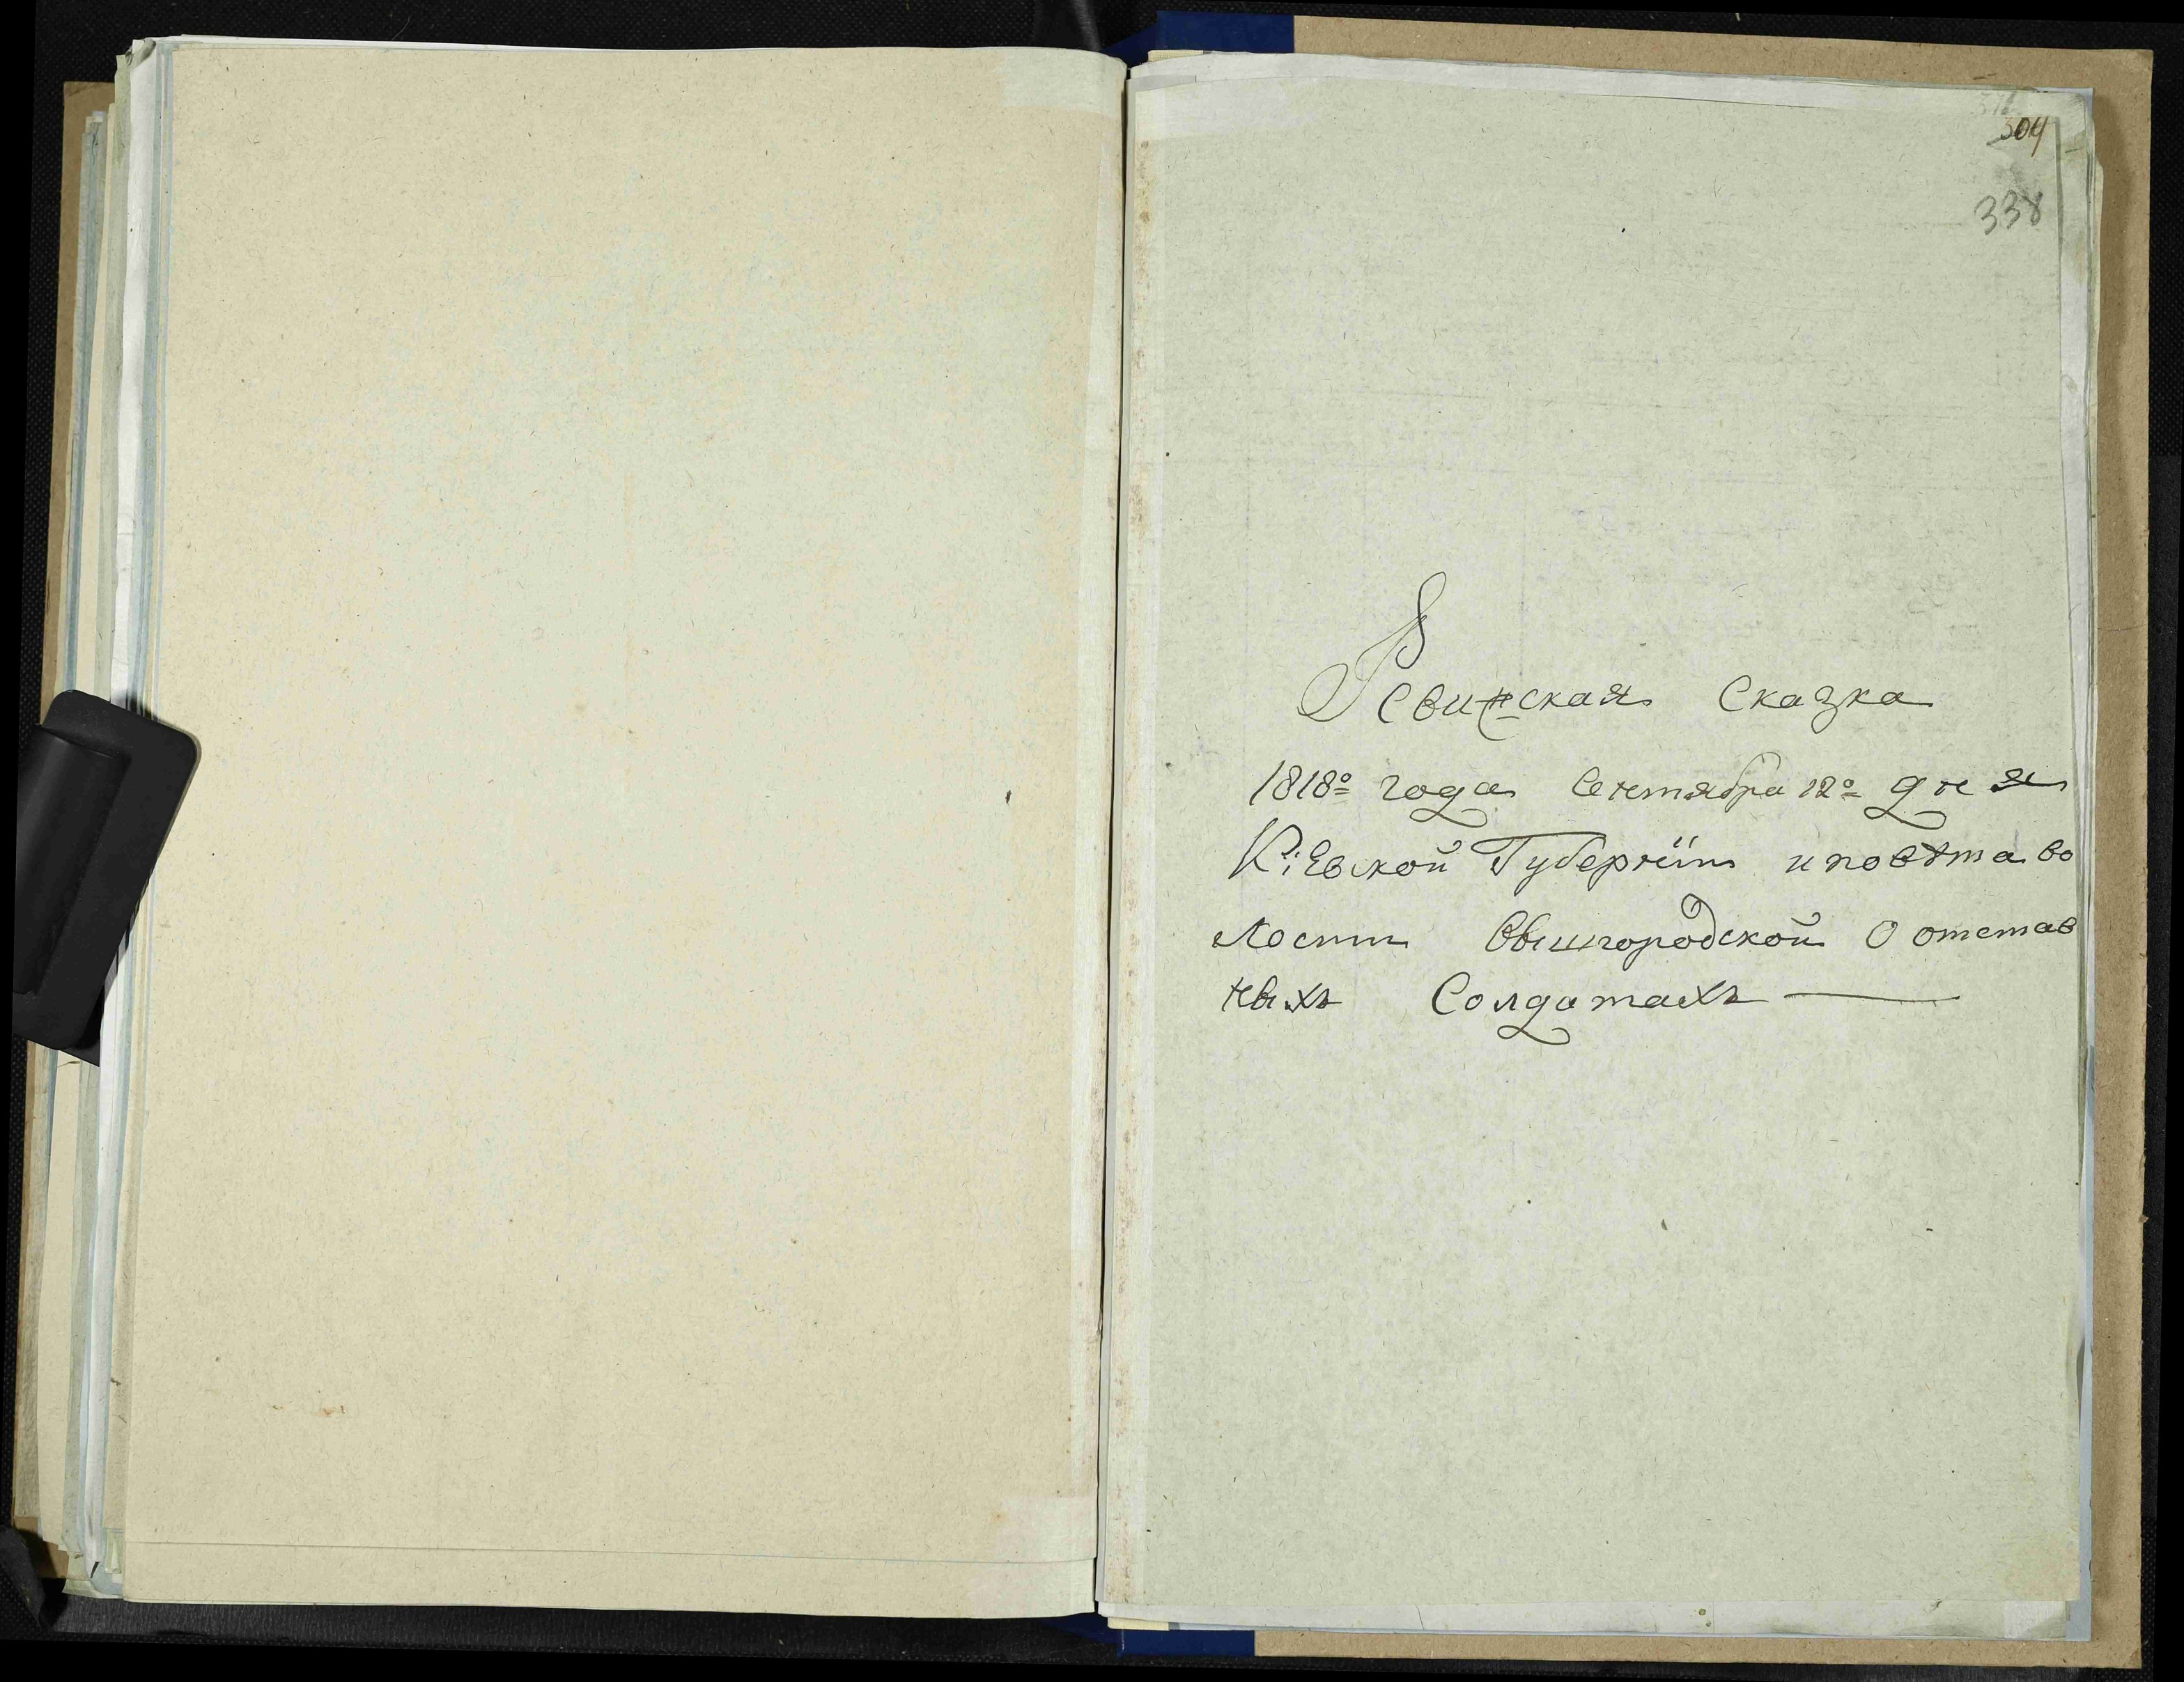 304
338
Ревизская Сказка
1818º года Сентября 12º дня
Кіевской Губерніи и повѣта во
лости Вышгородской О отстав
ныхъ Солдатахъ